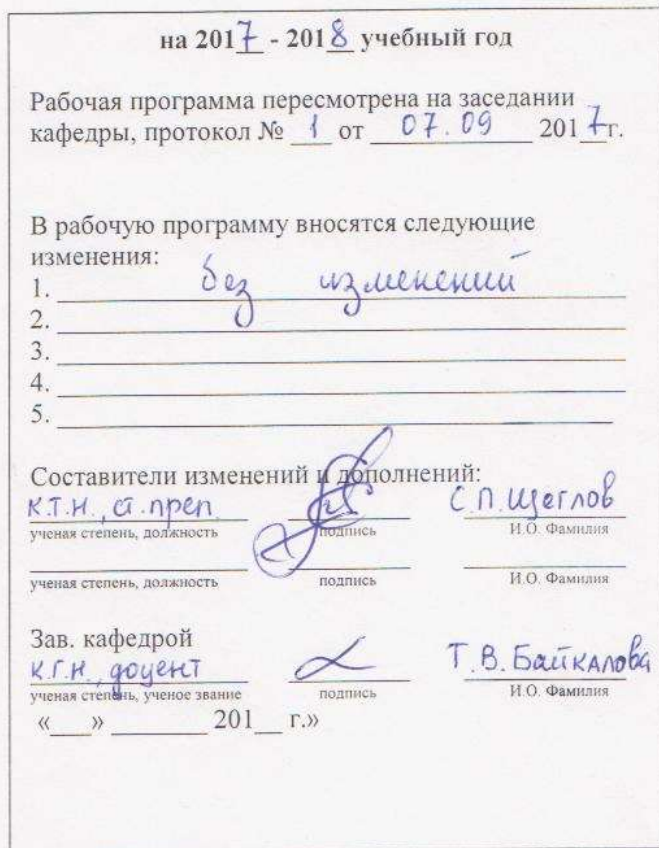 на 2017 - 2018 учебный год
Рабочая программа пересмотрена на заседании
кафедры, протокол № 1 от 07.09 2017г.
В рабочую программу вносятся следующие
изменения:
1. без изменений
2.
3.
4.
5.
Составители изменений и дополнений:
к.т.н., ст. преп. С.П. Щеглов
ученая степень, должность подпись И.О. Фамилия
ученая степень, должность подпись И.О. Фамилия
Зав. кафедрой
к.г.н., доцент Т.В. Байкалова
ученая степень, ученое звание подпись И.О. Фамилия
«___» ______ 201__ г.»